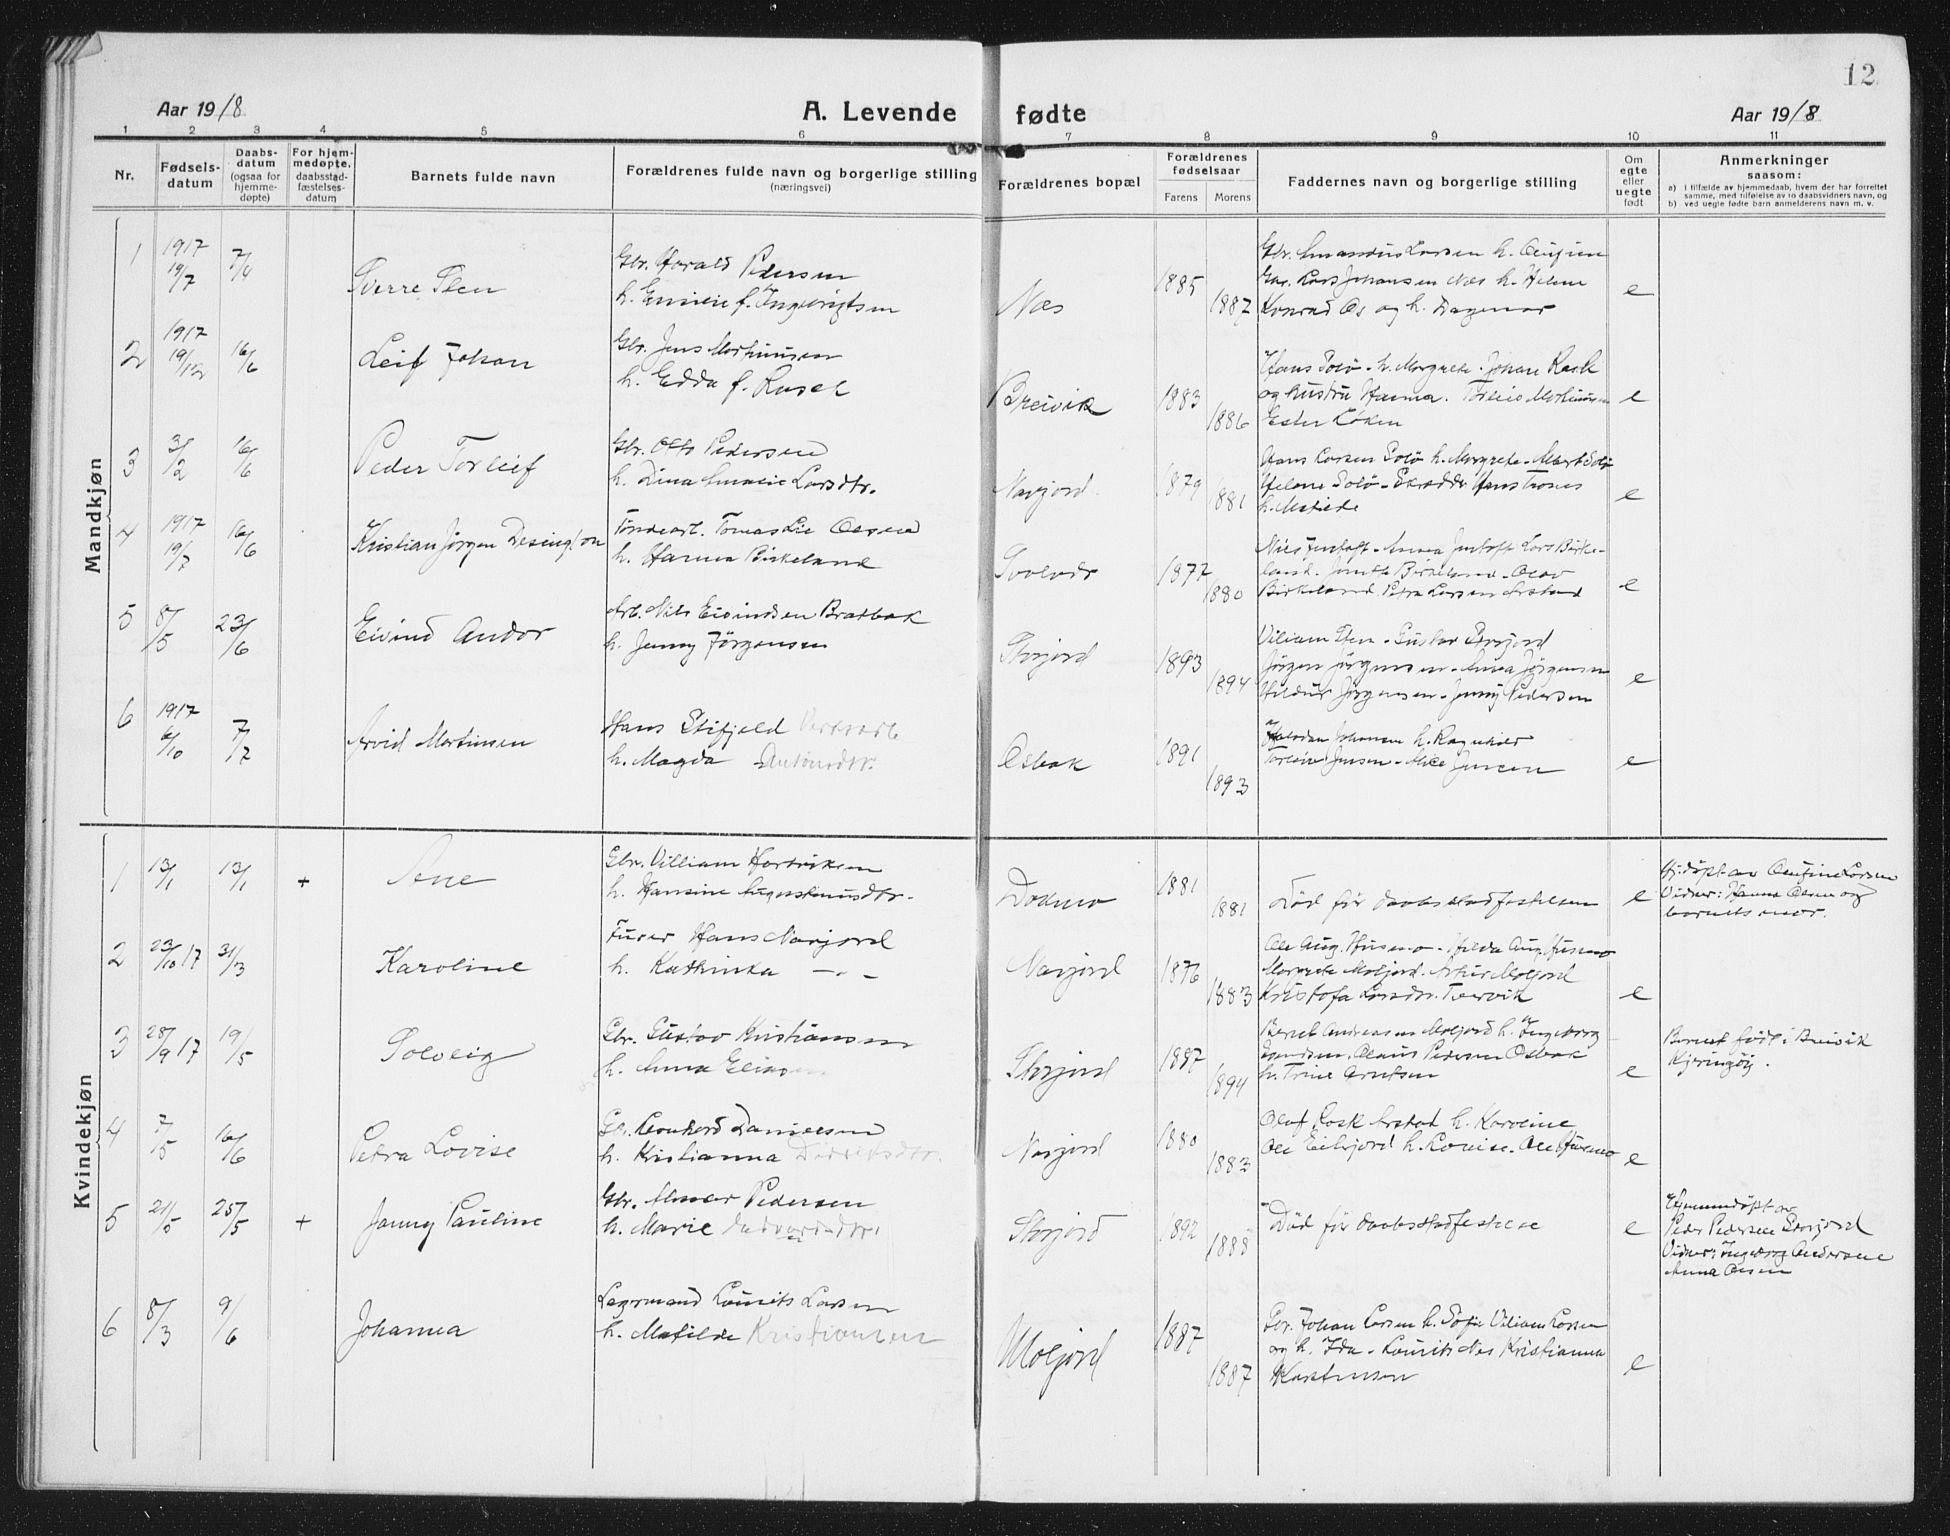 12
Aar 1918
A. Levende fødte
Aar 1918
1 2 3 4 5 6 7 8 9 10 11
Nr.
Fødsels-
datum
Daabs-
datum
(ogsaa for
hjemme-
døpte)
For hjem-
medøpte,
daabsstad-
fæstelses-
datum
Barnets fulde navn
Forældrenes fulde navn og borgerlige stilling
(næringsvei)
Forældrenes bopæl
Forældrenes
fødselsaar
Farens Morens
Faddernes navn og borgerlige stilling
Om
egte
eller
uegte
født
Anmerkninger
saasom:
a) i tilfælde av hjemmedaab, hvem der har forrettet
samme, med tilføielse av to daabsvidners navn, og
b) ved uegte fødte barn anmelderens navn m. v.
Mandkjøn
1 1917 19/7 7/4 Sverre
Gbr. Harald Pedersen
h. Emilie f. Ingebrigtsen
Næs 1885 1887
Gbr. Amandus Larsen h.
Gbr. Lars Johansen Næs h. Helene
Konrad Os og h. Dagmar
e
2 1917 19/12 16/6 Leif Johan
Gbr. Jens Mortinsen
h. Edda f.
Breivik 1883 1886
Hans Solø - h. Margrete - Johan Rask
og hustru Hanna. Torleif Mortinsen
Ester Løken
e
3 3/2 16/6 Peder Torleif
Gbr. Otto Pedersen
h. Dina Amalie Larsdtr.
Navjord 1879 1881
Hans Larsen Solø h. Margrete - Albert Solø
Helene Solø - Hans
h. Matilde
e
4 1917 19/7 16/6 Kristian Jørgen Desington
Tøndearb. Tomas Olsen
h. Hanna Birkeland
Svolvær 1877 1880
Nils - Anna Lars Birke-
land. Birkeland - Olav
Birkeland. Petra Larsen Arstad
e
5 8/5 23/6 Eivind Andor
Arb. Nils Eivindsen Bratbak
h. Jenny Jørgensen
Storjord 1893 1894
Viliam - Gustav Storjord
Jørgen Jørgensen - Anna Jørgensen
Hildur Jørgensen - Jenny Pedersen
e
6 1917 6/10 7/7 Arvid Mortinsen
Hans Stifjeld
h. Magda Antonsdtr.
Osbak 1891 1893
Johansen h. Ragnhild
Jensen - Alice Jensen
e
Kvindekjøn
1 13/1 13/1 + Ane
Gbr. Villiam Hartviksen
h. Hansine Augustinusdtr.
Dokmo 1881 1881
Død før daabsstadfestelsen
e
Hj.døpt av Larsen
Vidner: Hanna Olsen og
barnets mor.
2 23/10 17 31/3 Karoline
Furer Hans Navjord
h. Kathinka — " —
Navjord 1876 1883
Ole Aug. Husmo - Hilda Aug. Husmo
Margrete Moljord. Artur Moljord
Kristofa Larsdtr. Tvervik
e
3 28/9 17 19/5 Solveig
Gbr. Gustav Kristiansen
h. Anna
Storjord 1887 1894
Bernt Andreasen Moljord h. Ingeborg
Olaus Pedersen Osbak
h. Trine Arntsen
e
Barnet født i Breivik
Kjeringøy.
4 7/5 16/6 Petra Lovise
Gbr. Leonhard Danielsen
h. Kristianna
Navjord 1880 1883
Olaf Rask Arstad h. Karoline
Ole Eilsjord h. Lovise. Ole Husmo
e
5 21/5 25/5 + Jenny Pauline
Gbr. Almar Pedersen
h. Marie
Storjord 1892 1888
Død før daabsstadfestelse
e
Hjemmedøpt av
Peder Pedersen Storjord
Vidner: Ingeborg Andersen
Anna Olsen
6 8/3 9/6 Johanna
Lagermand Larsen
h. Matilde Kristiansen
Moljord 1887 1887
Gbr. Johan Larsen h. Sofie Viliam Larsen
og h. Ida - Næs Kristianna
Karstensen
e